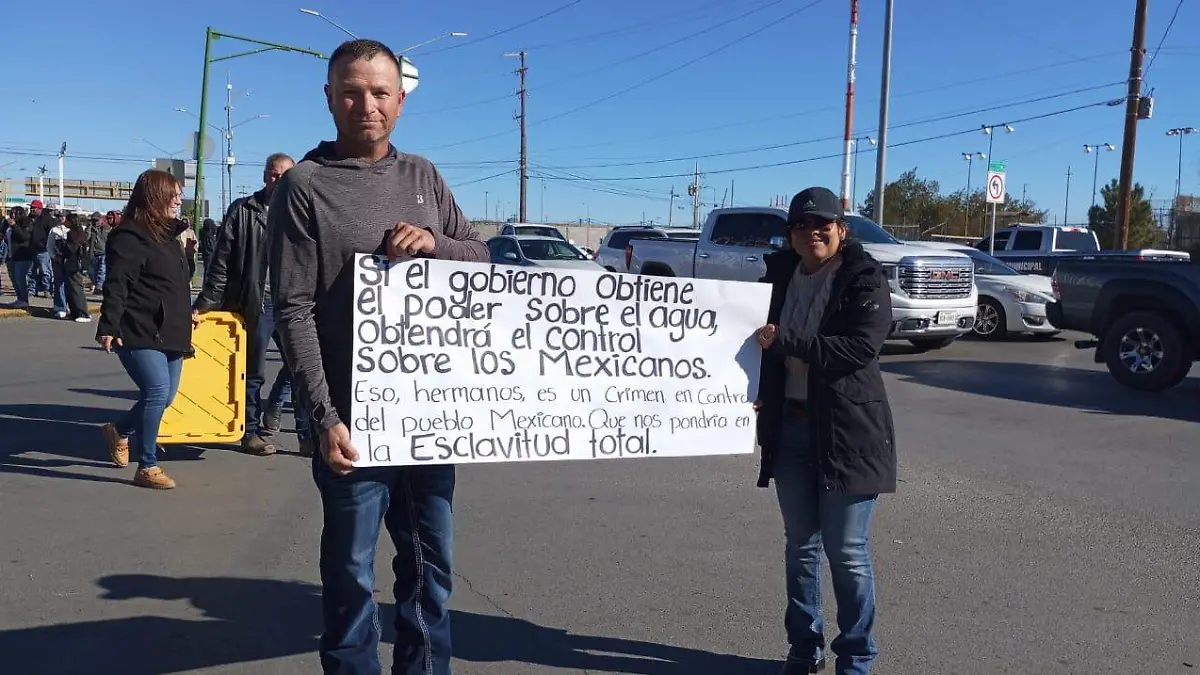 Si el gobierno obtiene
el poder sobre el agua,
obtendrá el control
sobre los Mexicanos.
Eso, hermanos, es un Crimen en Contra
del pueblo Mexicano. Que nos pondría en
la Esclavitud total.
GMC
MUNICIPAL